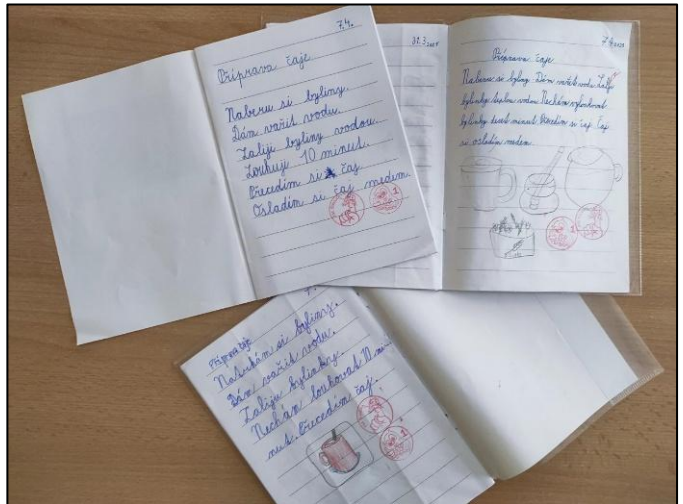 7.4.
Příprava čaje
Naberu si byliny.
Dám vařit vodu.
Zaliji byliny vodou.
Louhuji 10 minut.
Precedím si čaj
Osladím si čaj medem.
31.3.
Příprava čaje
Naberu si byliny. Dám vařit vodu. Zaliji
bylinky teplou vodou. Nechám vylouhovat
bylinky deset minut. Precedím si čaj. Čaj
si osladím medem.
Příprava čaje
Natrhám si byliny.
Dám vařit vodu.
Zaliju bylinky.
Nechám louhovat 10 mi-
nut. Precedím čaj.